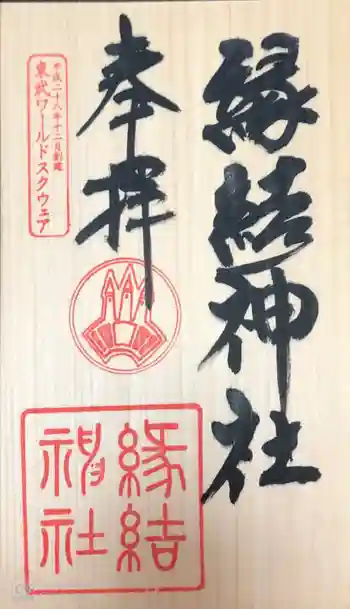 縁結神社
奉拝
平成二十六年十二月創建
東武ワールドスクウェア
縁結
神社